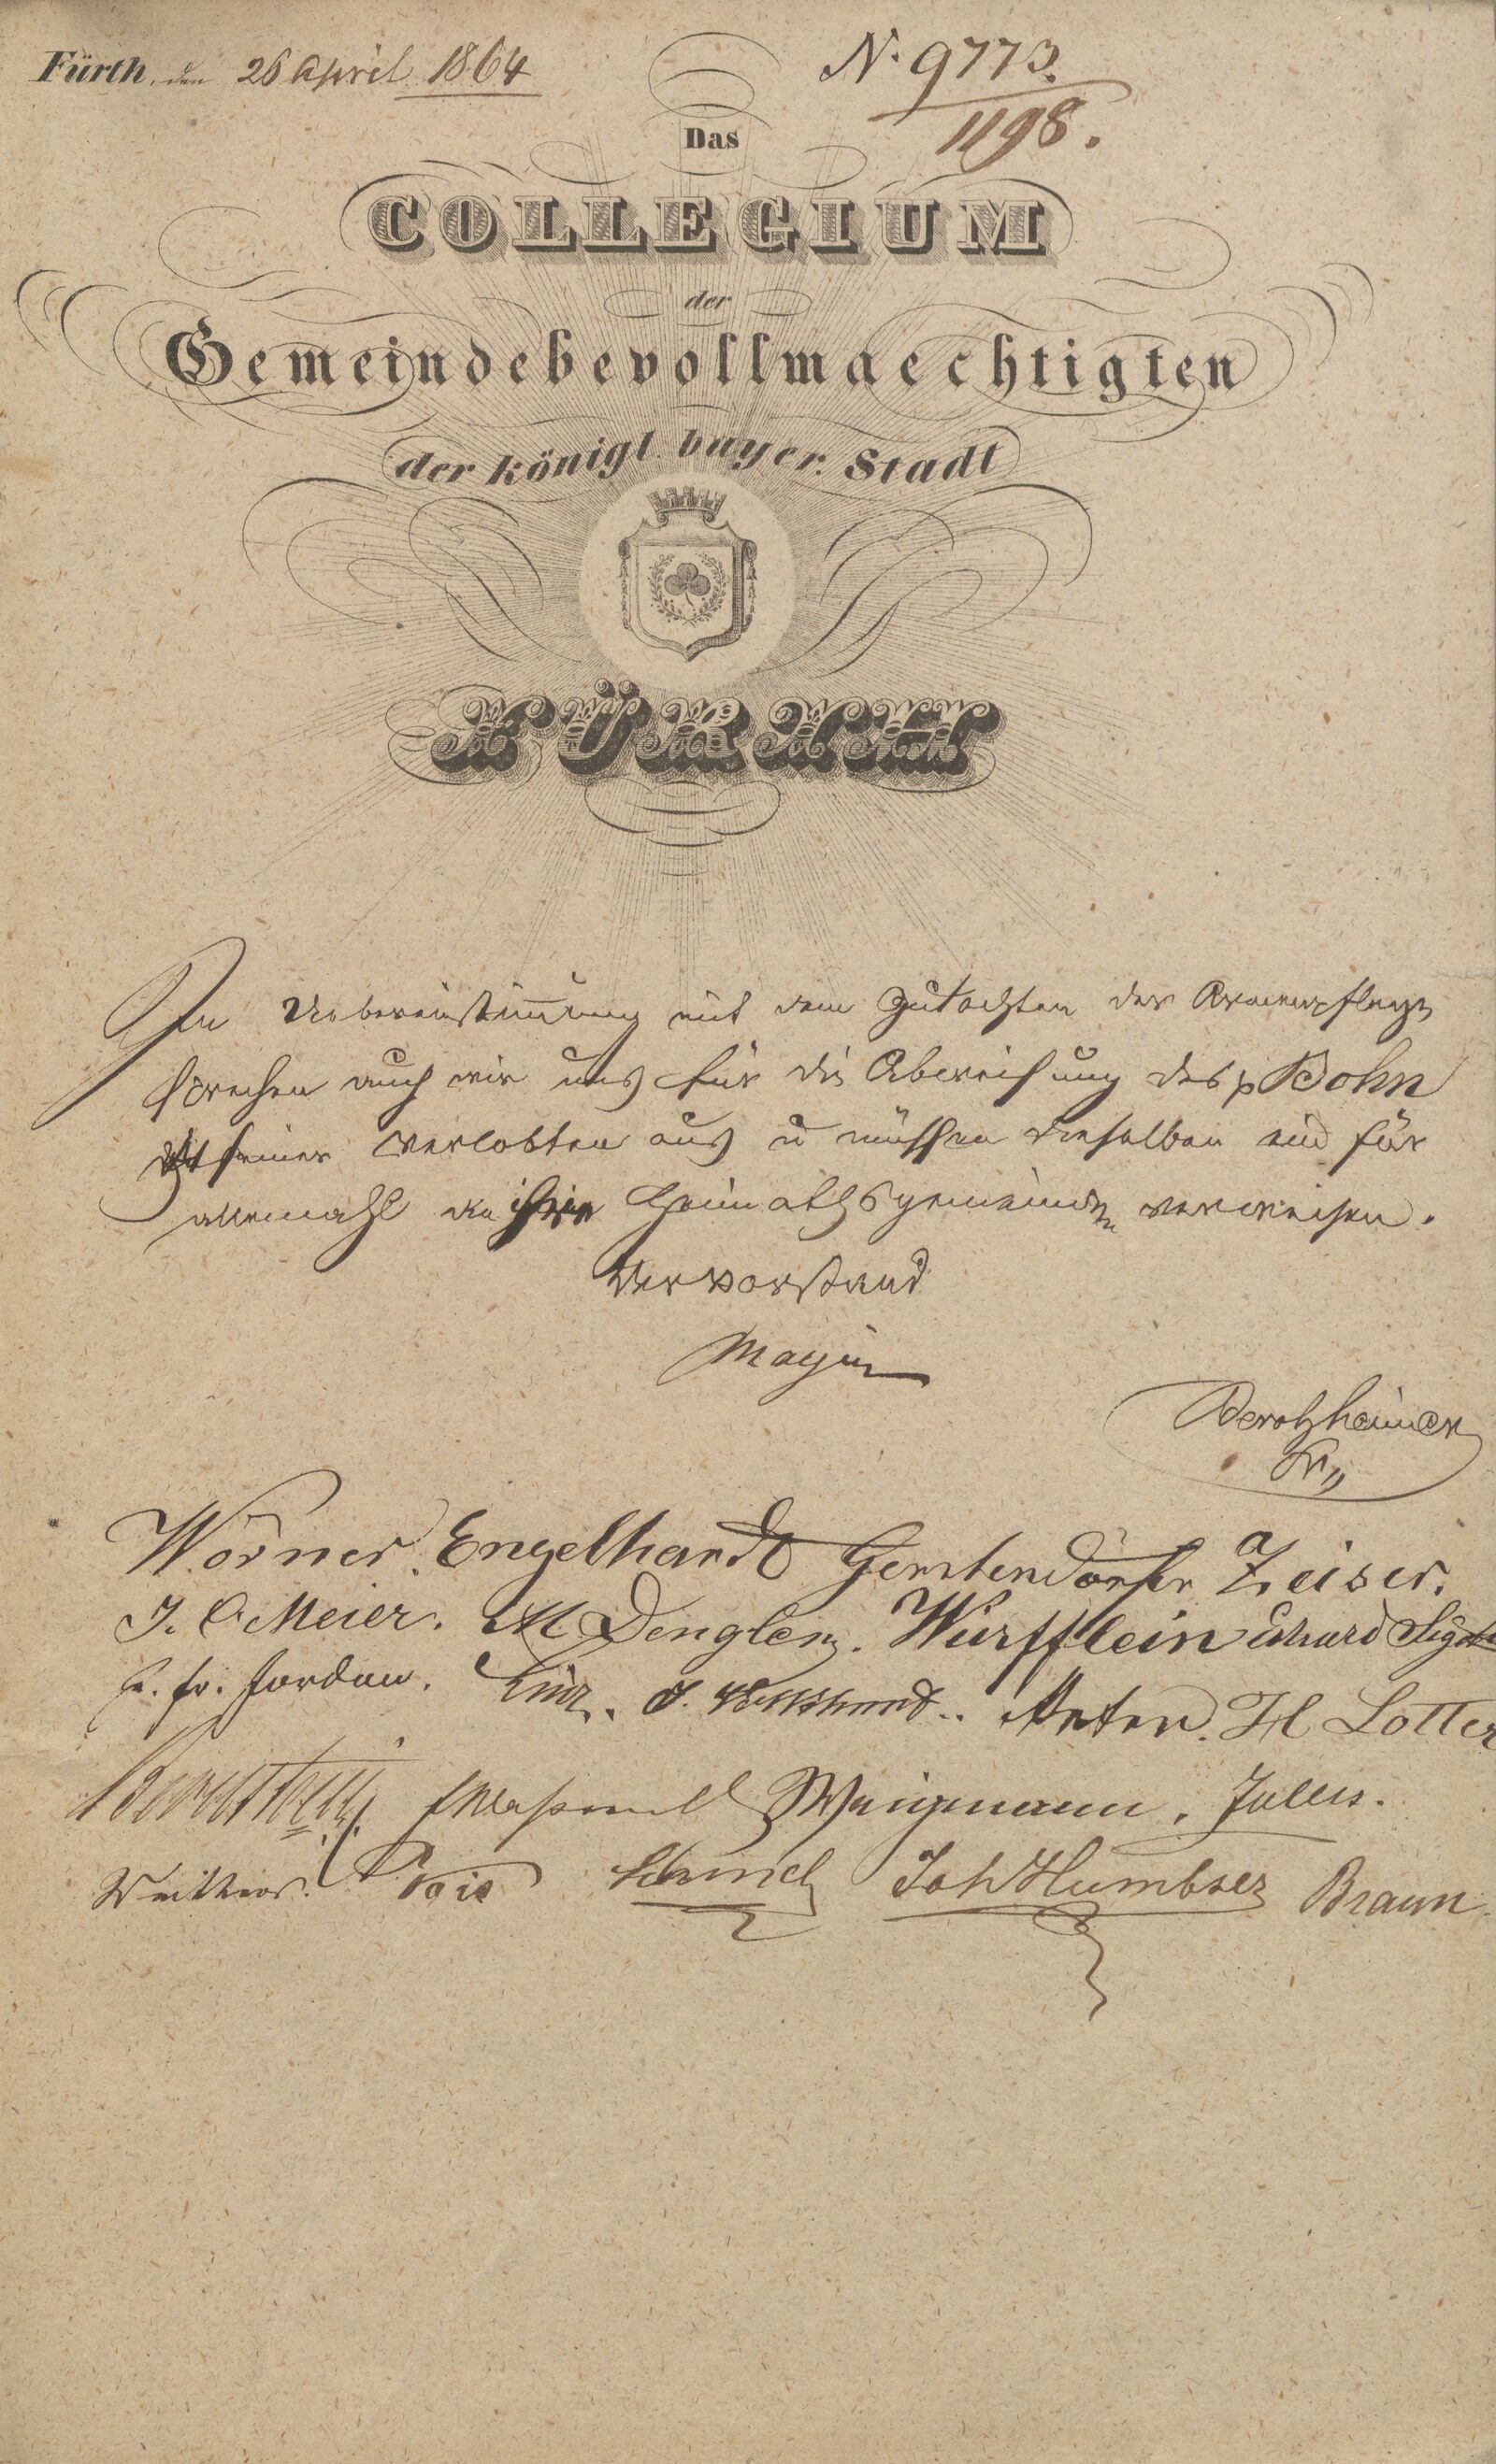 Fürth, den 26 April 1864
N. 9773.
1198.
Das
COLLEGIUM
der
Gemeindebevollmaechtigten
der königl. bayer. Stadt
FÜRTH
In Uebereinstim̅ung mit dem Gutachten der Armenpflege
sprechen auch wir uns für die Abweisung des p Bohn
seiner Verlobten aus u müssen dieselben ein für
allemahl an ihre Heimathsgemeinden verweisen.
Der Vorstand
Mayer
Berolzheimer
Wörner. Engelhardt Gerstendörfer Zeiser.
J. C. Meier. M Dengler. Würfflein Erhard
fr. Jordan. J. Volkhardt. Arter. H Lotter
Weigmann.
Joh Humbser Braun.